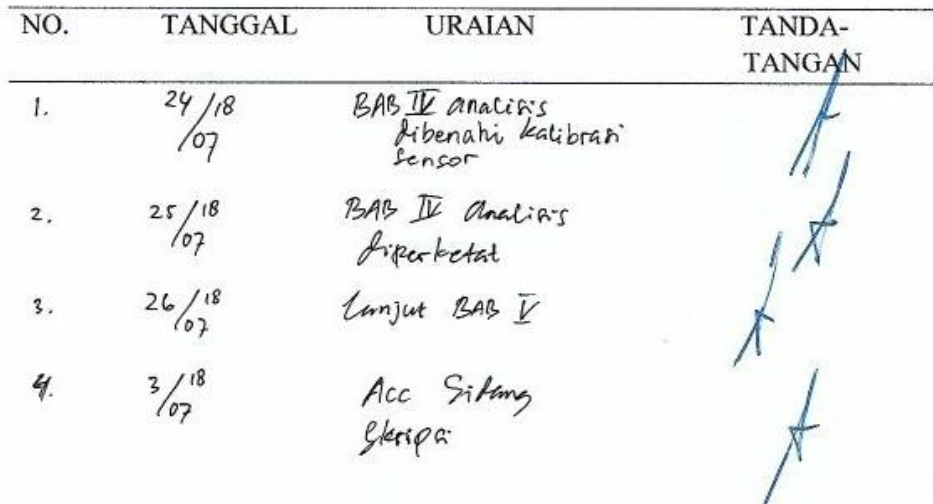 NO. TANGGAL URAIAN TANDA-
TANGAN
1. 24/18 BAB IV analisis
/07 dibenahi kalibrasi
sensor
2. 25/18 BAB IV Analisis
/07 diperketat
3. 26/18 Lanjut BAB V
/07
4. 3/18 Acc Sidang
/07 Skripsi